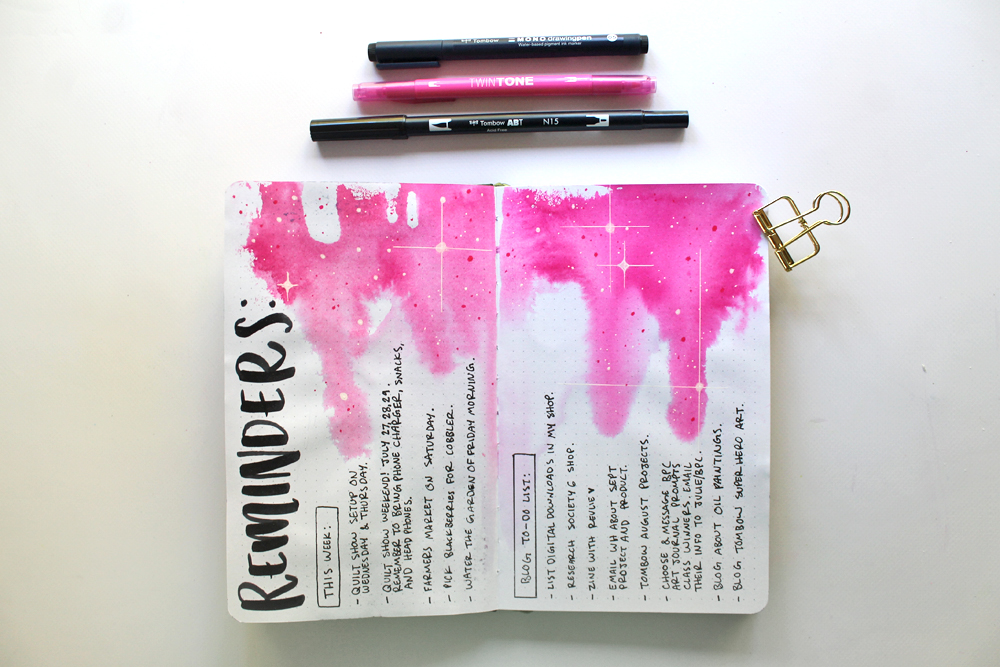 Tombow MONO drawingpen
Water-based pigment ink marker
TWINTONE
Tombow ABT N15
Acid Free
REMINDERS:
THIS WEEK:
- QUILT SHOW SETUP ON
WEDNESDAY & THURSDAY.
- QUILT SHOW WEEKEND! JULY 27,28,29.
REMEMBER TO BRING PHONE CHARGER, SNACKS,
AND HEAD PHONES.
- FARMERS MARKET ON SATURDAY.
- PICK BLACKBERRIES FOR COBBLER.
- WATER THE GARDEN OF FRIDAY MORNING.
BLOG TO-DO LIST:
- LIST DIGITAL DOWNLOADS IN MY SHOP.
- RESEARCH SOCIETY6 SHOP.
- ZINE WITH
- EMAIL WH ABOUT SEPT
PROJECT AND PRODUCT.
- TOMBOW AUGUST PROJECTS.
- CHOOSE & MESSAGE BPC
ART JOURNAL PROMPTS
CLASS WINNERS. EMAIL
THEIR INFO TO JULIE/BPC.
- BLOG ABOUT OIL PAINTINGS.
- BLOG TOMBOW SUPER HERO ART.